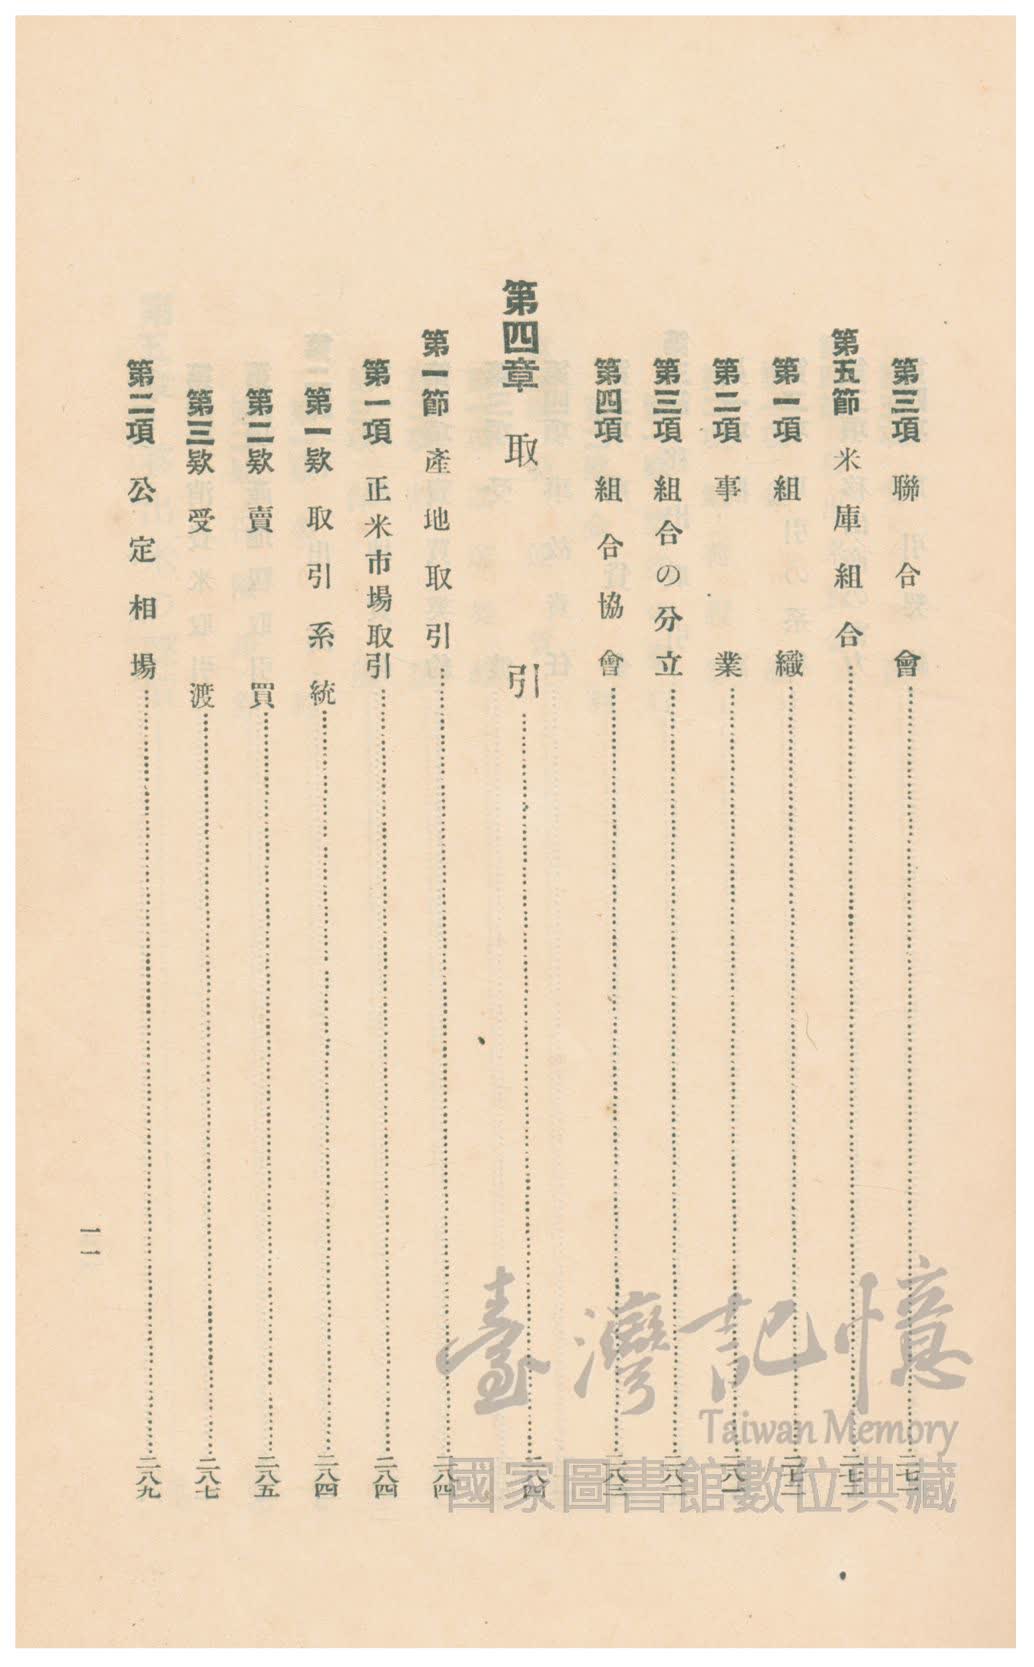 第三項 聯合會……二七一
第五節 米庫組合……二七三
第一項 組織……二七三
第二項 事業……二八一
第三項 組合の分立……二八二
第四項 組合協會……二八三
第四章 取引……二八四
第一節 產地取引……二八四
第一項 正米市場取引……二八四
第一款 取引系統……二八四
第二款 賣買……二八五
第三款 受渡……二八七
第二項 公定相場……二八九
一一
臺灣記憶
Taiwan Memory
國家圖書館數位典藏